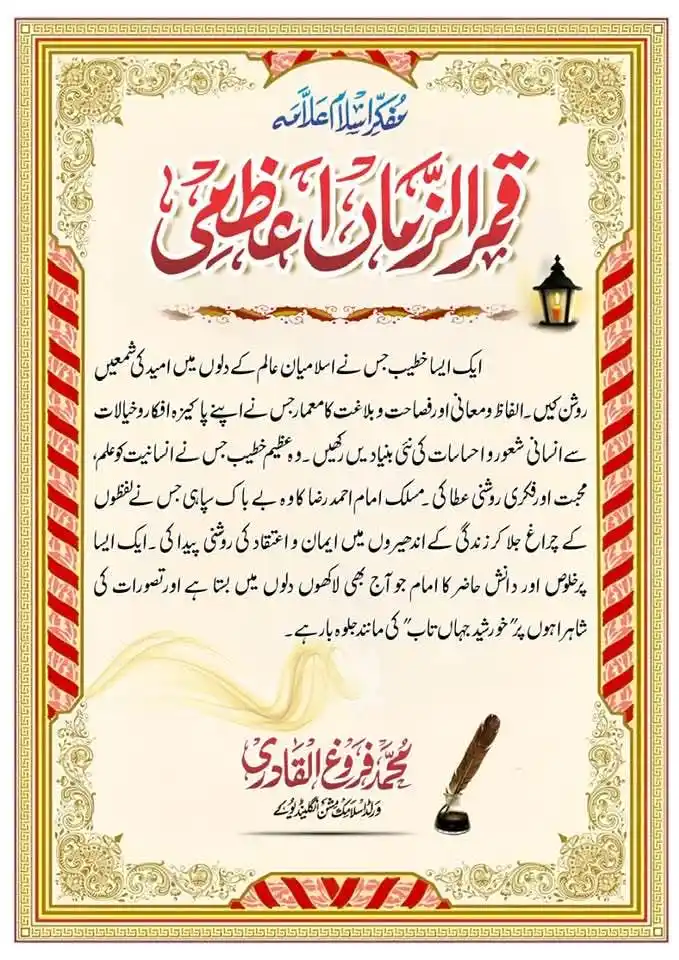 مُفکرِ اسلام علّامہ
قمر الزّماں اعظمی
ایک ایسا خطیب جس نے اسلامیان عالم کے دلوں میں امید کی شمعیں
روشن کیں۔ الفاظ و معانی اور فصاحت و بلاغت کا معمار جس نے اپنے پاکیزہ افکار و خیالات
سے انسانی شعور و احساسات کی نئی بنیادیں رکھیں۔ وہ عظیم خطیب جس نے انسانیت کو علم،
محبت اور فکری روشنی عطا کی۔ مسلک امام احمد رضا کا وہ بے باک سپاہی جس نے لفظوں
کے چراغ جلا کر زندگی کے اندھیروں میں ایمان و اعتقاد کی روشنی پیدا کی۔ ایک ایسا
پرخلوص اور دانش حاضر کا امام جو آج بھی لاکھوں دلوں میں بستا ہے اور تصورات کی
شاہراہوں پر "خورشید جہاں تاب" کی مانند جلوہ بار ہے۔
محمّد فروغ القادری
ورلڈ اسلامک مشن انگلینڈ یو کے